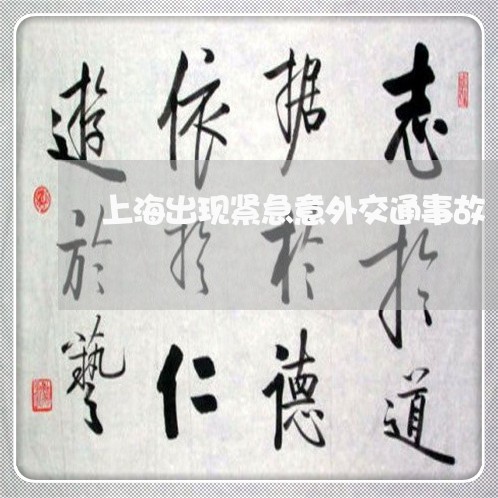 志於道
据於德
依於仁
遊於藝
上海出现紧急意外交通事故